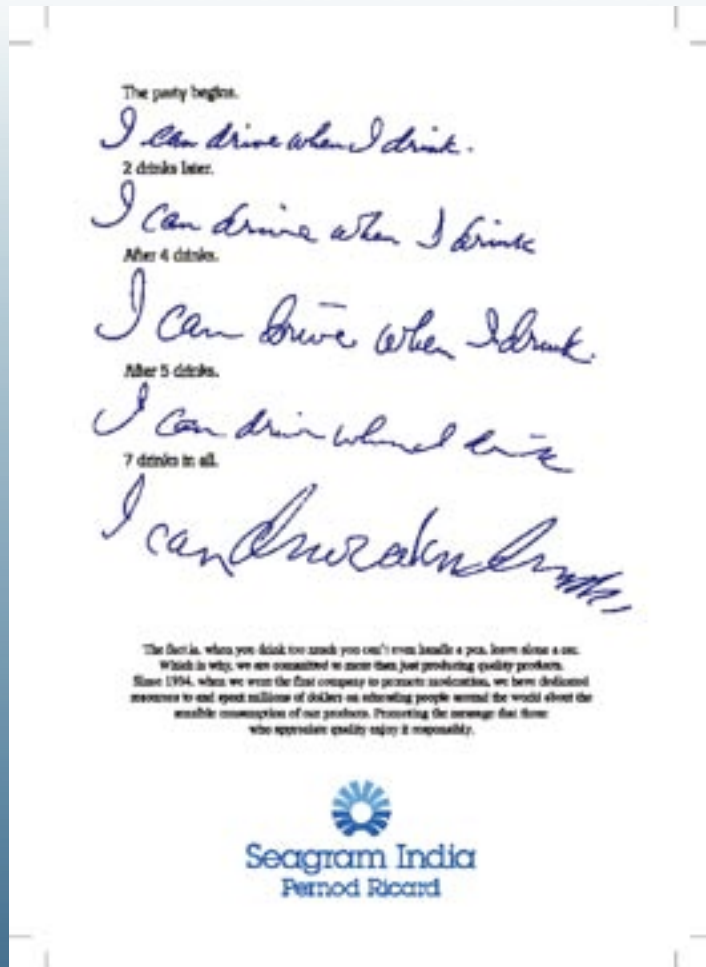 The party begins.
I can drive when I drink.
2 drinks later.
I can drive when I drink
After 4 drinks.
I can drive when I drink.
After 5 drinks.
I can drive when I drink
7 drinks in all.
I can
The fact is, when you drink too much you can't even handle a pen, leave alone a car.
Which is why, we are committed to more than just producing quality products.
Since 1934, when we were the first company to promote moderation, we have dedicated
resources to and spent millions of dollars on educating people around the world about the
sensible consumption of our products. Promoting the message that those
who appreciate quality enjoy it responsibly.
Seagram India
Pernod Ricard